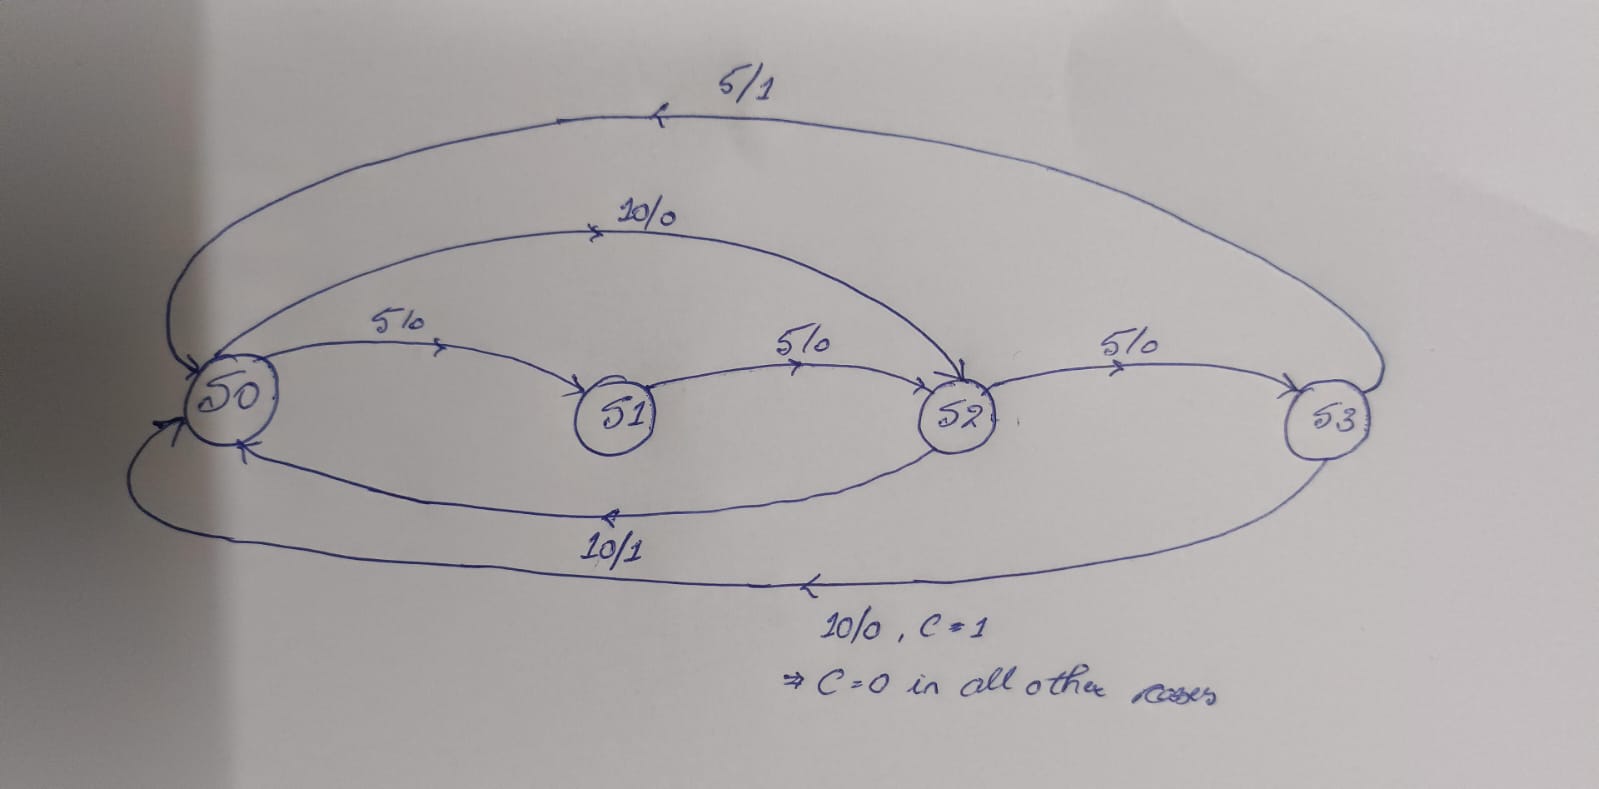 5/1
10/0
5/0
5/0
5/0
S0
S1
S2
S3
10/1
10/0, C=1
⇒ C=0 in all other cases